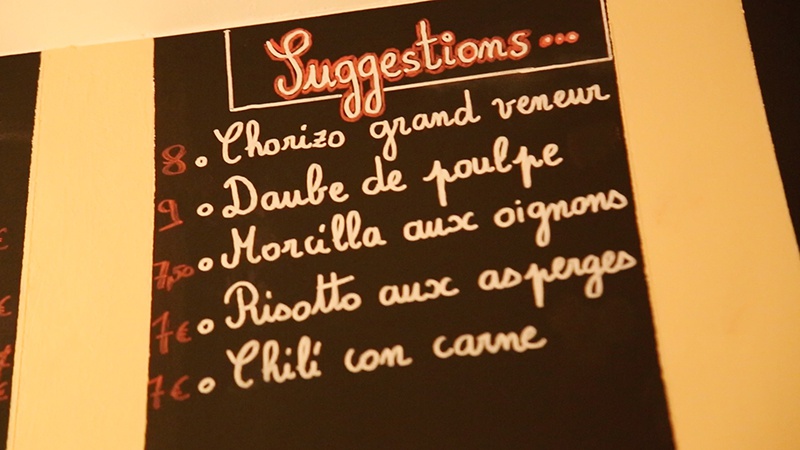 Suggestions...
8 o Chorizo grand veneur
9 o Daube de poulpe
7,50 o Morcilla aux oignons
7€ o Risotto aux asperges
7€ o Chili con carne
€
€
€